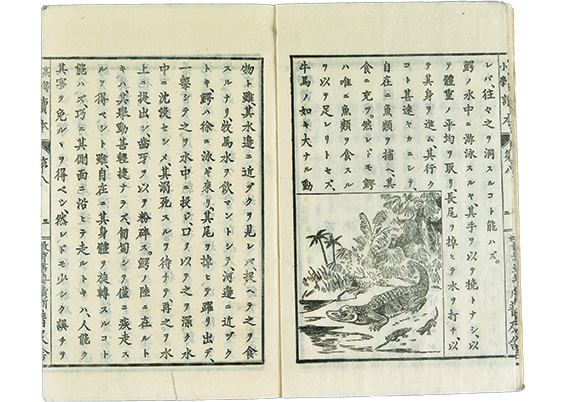 レバ、往々之ヲ洞スルコト能ハズ。
鰐ノ水中ニ游泳スルヤ、其手ヲ以テ橈トナシ、以
テ體重ノ平均ヲ取リ長尾ヲ掉ヒテ水ヲ打チ、以
テ其身ヲ進ム、其行ク
コト甚速ヤカニシテ、
自在ニ魚類ヲ捕ヘ其
食ニ充ツ。然レドモ鰐
ハ唯ニ魚類ヲ食スル
ヲ以テ足レリトセズ、
牛馬ノ如キ大ナル動
物ト雖其水邊ニ近ヅクヲ見レバ捉ヘテ之ヲ食
スルナリ、牧馬水ヲ飲マントシテ河邊ニ近ヅク
トキ、鰐ハ徐ニ泳ギ來リ其尾ヲ掉ヒテ躍リ出デ、
一擧シテ之ヲ水中ニ投ジ、口ヲ以テ之ヲ深ク水
中ニ沈没セシメ、其溺死スルヲ待チテ再之ヲ水
上ニ提出シ、齒牙ヲ以テ粉碎ス。鰐ノ陸ニ在ルト
キハ、其擧動甚輕捷ナラズ、匍匐シテ僅ニ疾走ス
ルヲ得ベシト雖自在ニ其身體ヲ旋轉スルコト
能ハズ、巧ニ其側面ニ沿ヒテ走ルトキハ、人能ク
其害ヲ免ルヽヲ得ベシ然レドモ少シク誤チヲ
讀本 第八 三